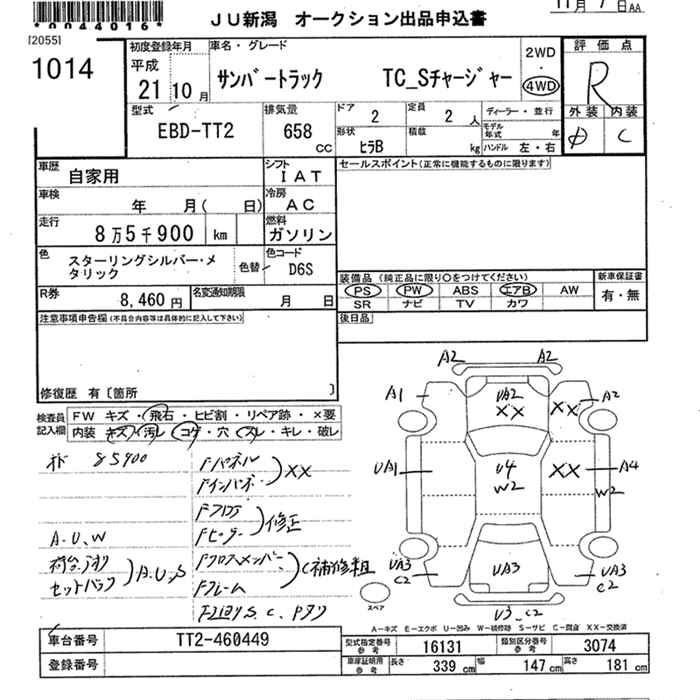 *0044016*
JU新潟 オークション出品申込書
11月7日AA
[2055]
1014
初度登録年月
平成
21 10月
車名・グレード
サンバートラック TC_Sチャージャー
2WD
・
4WD
評価点
R
外装 内装
D C
型式
EBD-TT2
排気量
658
CC
ドア
2
定員
2 人
ディーラー・並行
形状
ヒラB
積載
kg
モデル年式 年
ハンドル 左・右
車歴
自家用
シフト
IAT
セールスポイント(正常に機能するものに限ります)
車検
年 月( 日)
冷房
AC
走行
8万5千900 km
燃料
ガソリン
色
スターリングシルバー・メ
タリック
色替
色コード
D6S
R券
8,460円
名変通知期限
月 日
装備品(純正品に限り○をつけてください)
PS PW ABS エアB AW
SR ナビ TV カワ
新車保証書
有・無
後日品
注意事項申告欄(不具合内容等は具体的に記入して下さい)
修復歴 有〔箇所 〕
検査員
記入欄
FW キズ・飛石・ヒビ割・リペア跡・×要
内装 キズ・汚レ コゲ・穴・スレ・キレ・破レ
85900
A.U.W
荷台アオリ
セットバック
A.U.S
Fパネル
Fインパネ
XX
Fフロア
Fピラー
修正
Fクロスメンバー
Fフレーム
C補修粗
A2 A2
A1 UA2 XX XX A2
UA1 U4 W2 XX A4 W2
UA3 C2 UA3 UA3 C2
U3 C2
スペア
A-キズ E-エクボ U-凹み W-補修跡 S-サビ C-腐食 XX-交換済
車台番号
TT2-460449
登録番号
型式指定番号
参考
16131
類別区分番号
参考
3074
車庫証明用
参考
長さ 339 cm 幅 147 cm 高さ 181 cm